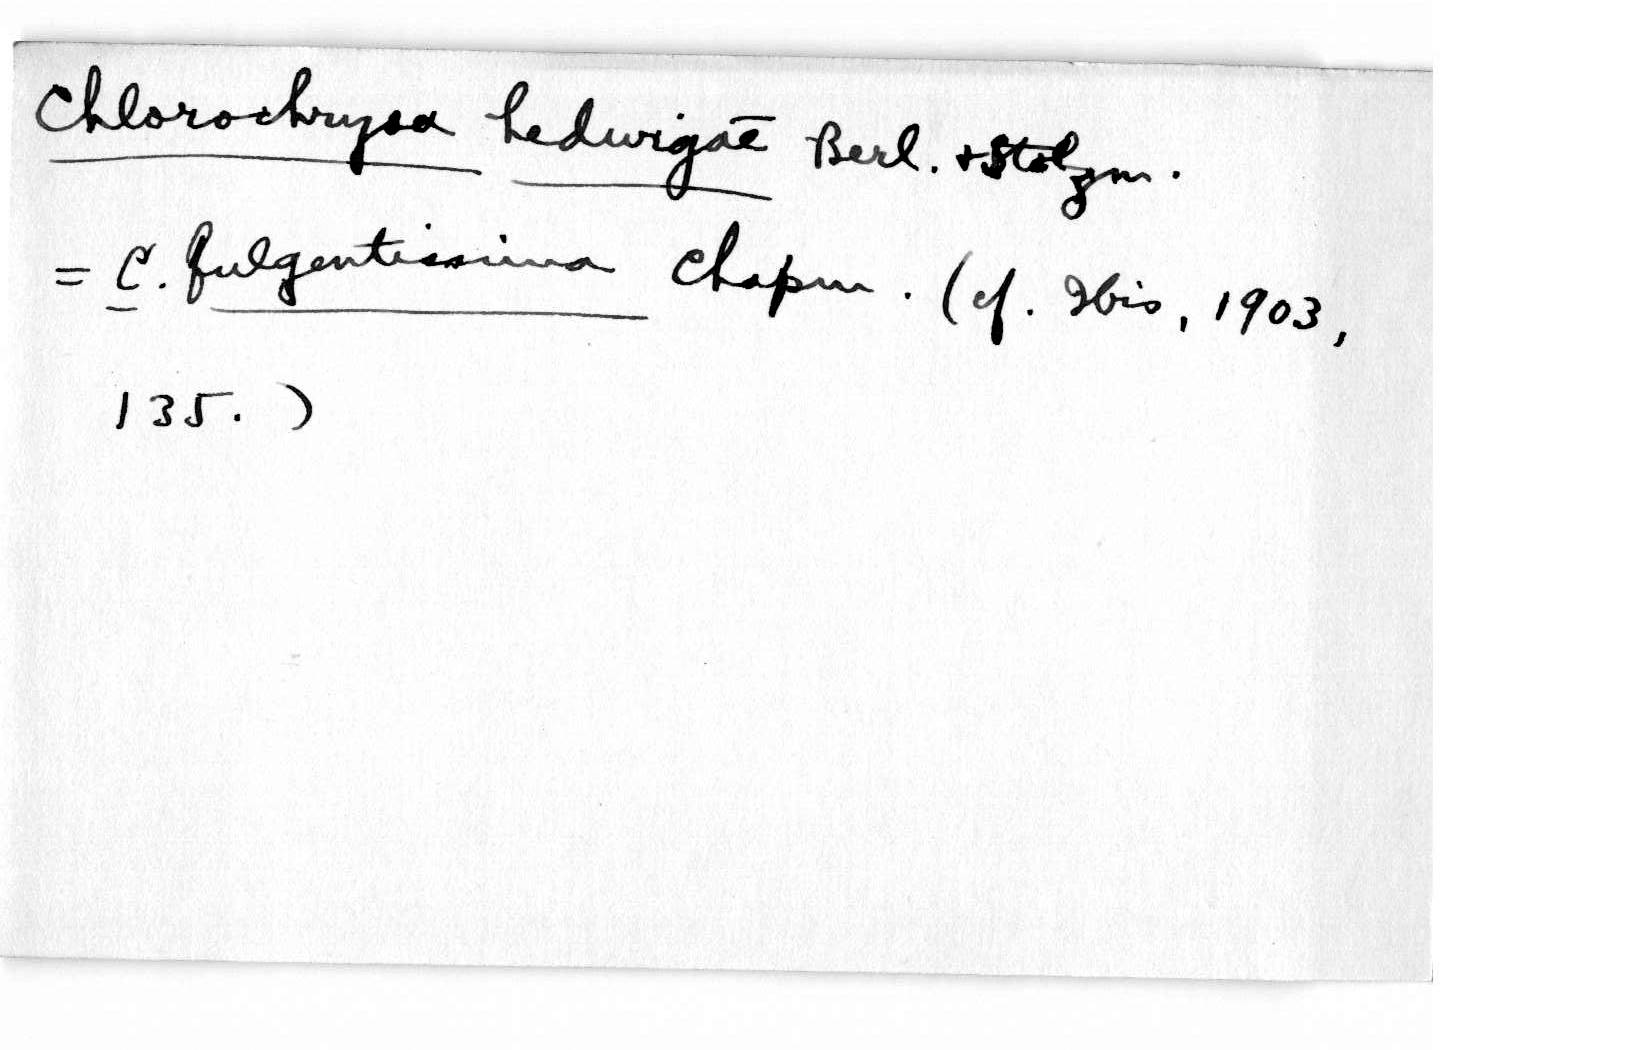 Chlorochrysa hedwigae Berl. + Stolzm.
= C. fulgentissima Chapm. (cf. Ibis, 1903,
135.)